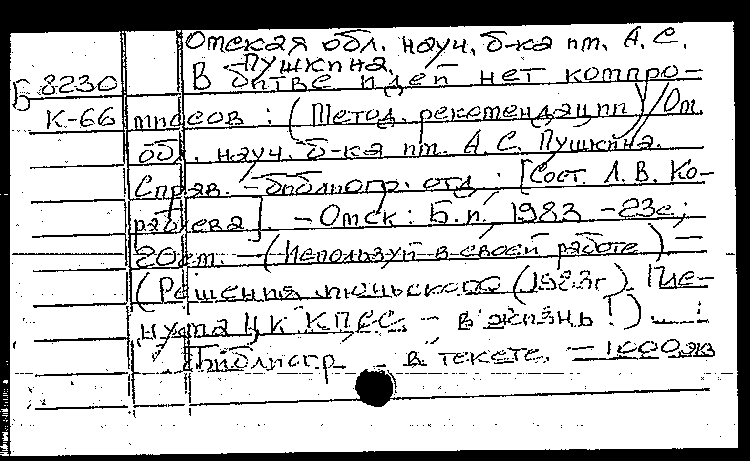 Омская обл. науч. б-ка им. А. С.
Пушкина.
Б 8230 В битве идей нет компро-
К-66 миссов: (Метод. рекомендации) / Ом.
обл. науч. б-ка им. А. С. Пушкина.
Справ.-библиогр. отд.; [Сост. Л. В. Ко-
]. - Омск: Б.и, 1983 - 23с;
20см. - (Используй в своей работе) -
(Решения июньского (1983г) Пле-
нума ЦК КПСС - в жизнь!).
Библиогр. в тексте. - 1000экз